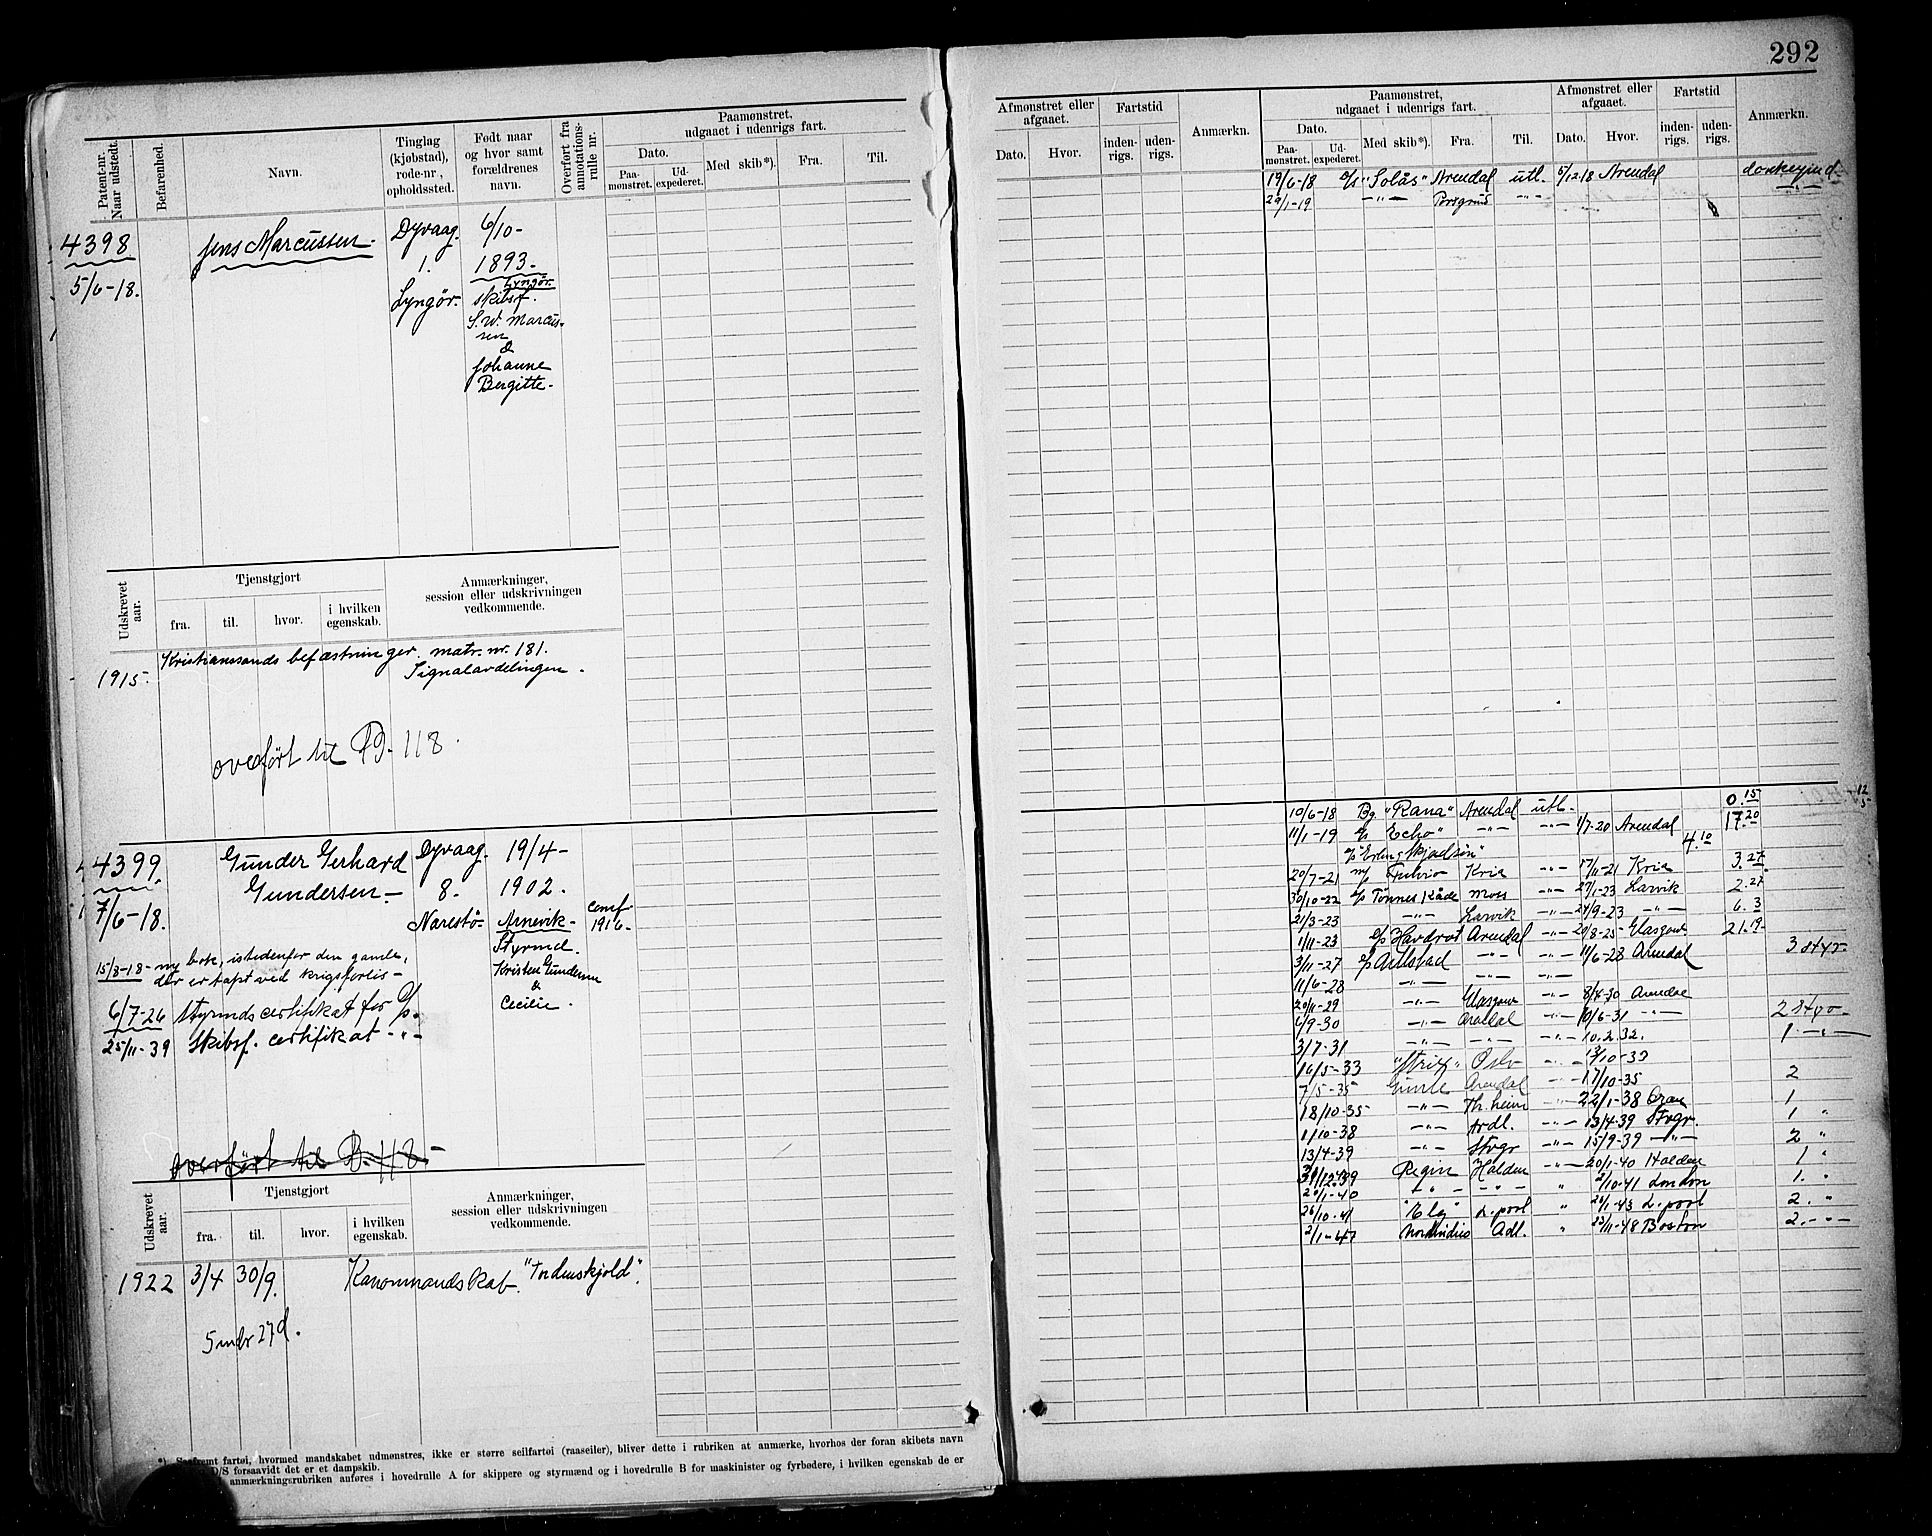 292
Patent-nr. Naar udstedt.
Befarenhed.
Navn.
Tinglag (kjøbstad), rode-nr., opholdssted.
Født naar og hvor samt forældrenes navn.
Overført fra annotations-rulle nr.
Paamønstret, udgaaet i udenrigs fart.
Dato.
Paa-mønstret.
Ud-expederet.
Med skib*).
Fra.
Til.
4398
5/6-18.
Jens Marcussen.
Dyvaag.
1.
Lyngör.
6/10-
1893.
Lyngör.
skibsf.
S. W. Marcus-
sen
&
Johanne
Bergitte.
Udskrevet aar.
Tjenstgjort
fra.
til.
hvor.
i hvilken egenskab.
Anmærkninger, session eller udskrivningen vedkommende.
Kristianssands befæstninger. matr. nr. 181.
1915.
Signalavdelingen.
overført til 118.
4399
7/6-18.
Gunder Gerhard
Gundersen
Dyvaag.
8.
Narestö
19/4-
1902.
Arnevik
Styrmd.
Kristen Gundersen
&
Cecilie.
1916.
15/8-18 - ny bok, istedenfor den gamle,
der er tapt ved krigsforlis -
6/7-26 Styrmds certifikat for
25/11-39 Skibsf. certifikat - " -
overført til B. 118.
Udskrevet aar.
Tjenstgjort
fra.
til.
hvor.
i hvilken egenskab.
Anmærkninger, session eller udskrivningen vedkommende.
1922 3/4 30/9. Kanonmandskab. "Tordenskjold".
5 mdr 27 d.
fartøi, hvormed mandskabet udmønstres, ikke er større seilfartøi (raaseiler), bliver dette i rubriken at anmærke, hvorhos der foran skibets navn
D/S forsaavidt det er et dampskib.
anmærkningsrubriken anføres i hovedrulle A for skippere og styrmænd og i hovedrulle B for maskinister og fyrbødere, i hvilken egenskab de er
Afmønstret eller afgaaet.
Dato.
Hvor.
Fartstid
inden-rigs.
uden-rigs.
Anmærkn.
Paamønstret, udgaaet i udenrigs fart.
Dato.
Paa-mønstret.
Ud-expederet.
Med skib*).
Fra.
Til.
Afmønstret eller afgaaet.
Dato.
Hvor.
Fartstid
inden-rigs.
uden-rigs.
Anmærkn.
19/6-18 "Solås" Arendal utl. 5/12-18 Arendal
29/1-19 - " - Porsgrund - " -
10/6-18 Bg "Rana" Arendal utl. 0.15
11/1-19 "Echo" - " - - " - 1/7-20 Arendal 17.20
4.10
20/7-21 Fulvio Kria - " - 17/11-21 Kria 3.27
30/10-22 Tönnes Moss - " - 27/1-23 Larvik 2.27
21/3-23 - " - Larvik - " - 24/9-23 - " - 6.3
1/11-23 Havdrot Arendal - " - 20/8-25 Glasgow 21.19
3/11-27 - " - - " - 11/6-28 Arendal 3 styr.
11/6-28 - " - - " - - " -
20/11-29 - " - Glasgow - " - 8/4-30 Arendal
6/9-30 - " - Arendal - " - 10/6-31 - " - 2 styr
3/7-31 - " - - " - - " - 10.2.32. 1 - " -
16/5-33 "Strix" Oslo - " - 13/10-33
7/5-35 Gunle Arendal - " - 17/10-35 2
18/10-35 - " - Th.heim - " - 22/1-38 Oran 1
1/10-38 - " - Ardl. - " - 13/4-39 Stvgr. 1 "
13/4-39 - " - Stvgr - " - 15/9-39 - " - 2 "
Regin Halden - " - 20/1-40 Halden 1 "
20/1-40 - " - - " - " 2/10-41 London 1. "
26/10-41 "Elg" L.pool " 26/1-43 L.pool 2. "
2/1-47 Adl. " 22/11-48 Boston 2. - " -